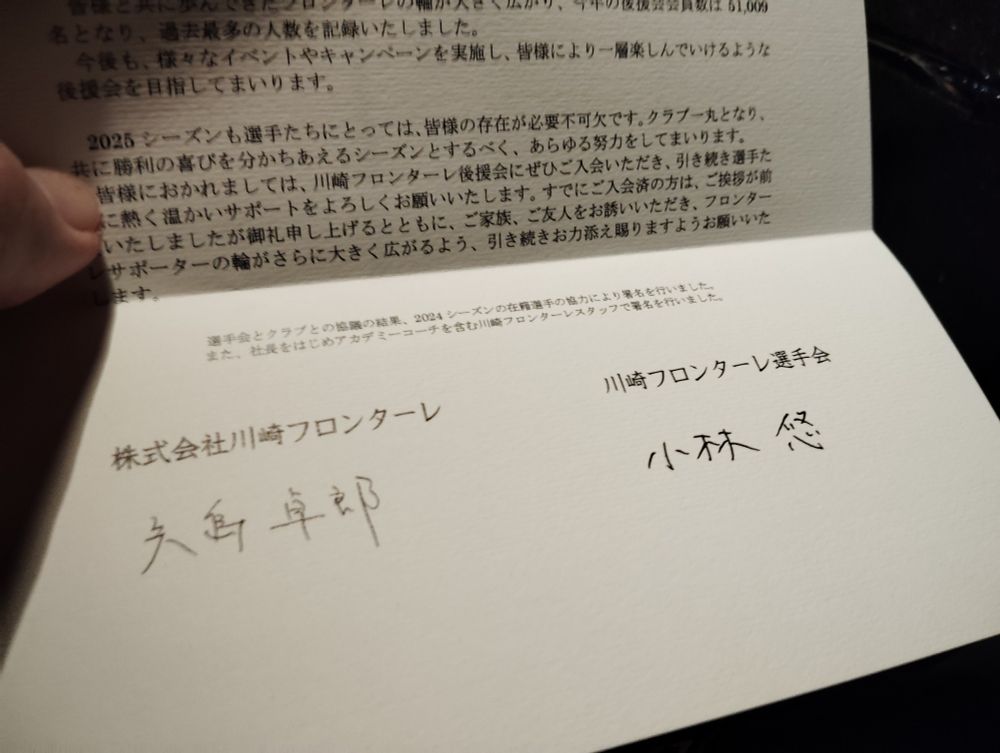 皆様と共に歩んできたフロンターレの輪が大きく広がり、今年の後援会会員数は 51,009
名となり、過去最多の人数を記録いたしました。
今後も、様々なイベントやキャンペーンを実施し、皆様により一層楽しんでいけるような
後援会を目指してまいります。
2025 シーズンも選手たちにとっては、皆様の存在が必要不可欠です。クラブ一丸となり、
共に勝利の喜びを分かちあえるシーズンとするべく、あらゆる努力をしてまいります。
皆様におかれましては、川崎フロンターレ後援会にぜひご入会いただき、引き続き選手た
に熱く温かいサポートをよろしくお願いいたします。すでにご入会済の方は、ご挨拶が前
いたしましたが御礼申し上げるとともに、ご家族、ご友人をお誘いいただき、フロンター
レサポーターの輪がさらに大きく広がるよう、引き続きお力添え賜りますようお願いいた
します。
選手会とクラブとの協議の結果、2024 シーズンの在籍選手の協力により署名を行いました。
また、社長をはじめアカデミーコーチを含む川崎フロンターレスタッフで署名を行いました。
川崎フロンターレ選手会
小林 悠
株式会社川崎フロンターレ
矢島 卓郎